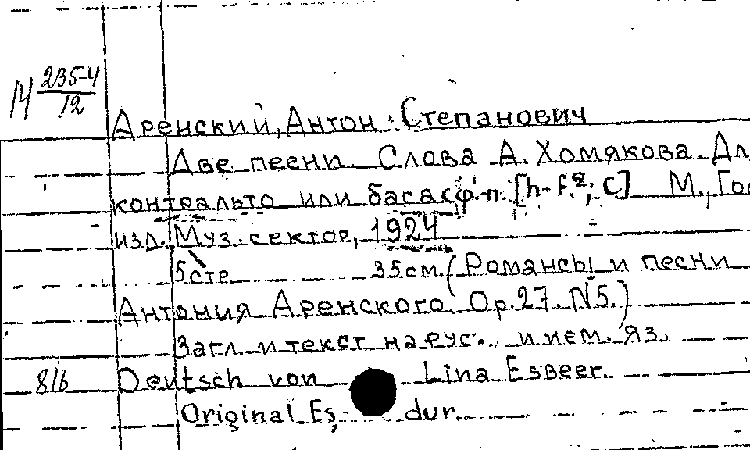 М 235-4/12
Аренский, Антон Степанович
Две песни. Слова А. Хомякова. Дл
контральто или баса с ф-п. [h-f²; C] М., Гос
изд. Муз. сектор, 1924
5 стр. 35 см. (Романсы и песни
Антония Аренского Op. 27. N5.)
Загл. и текст на рус. и нем. яз.
816 Deutsch von Lina Esbeer.
Original Es dur.